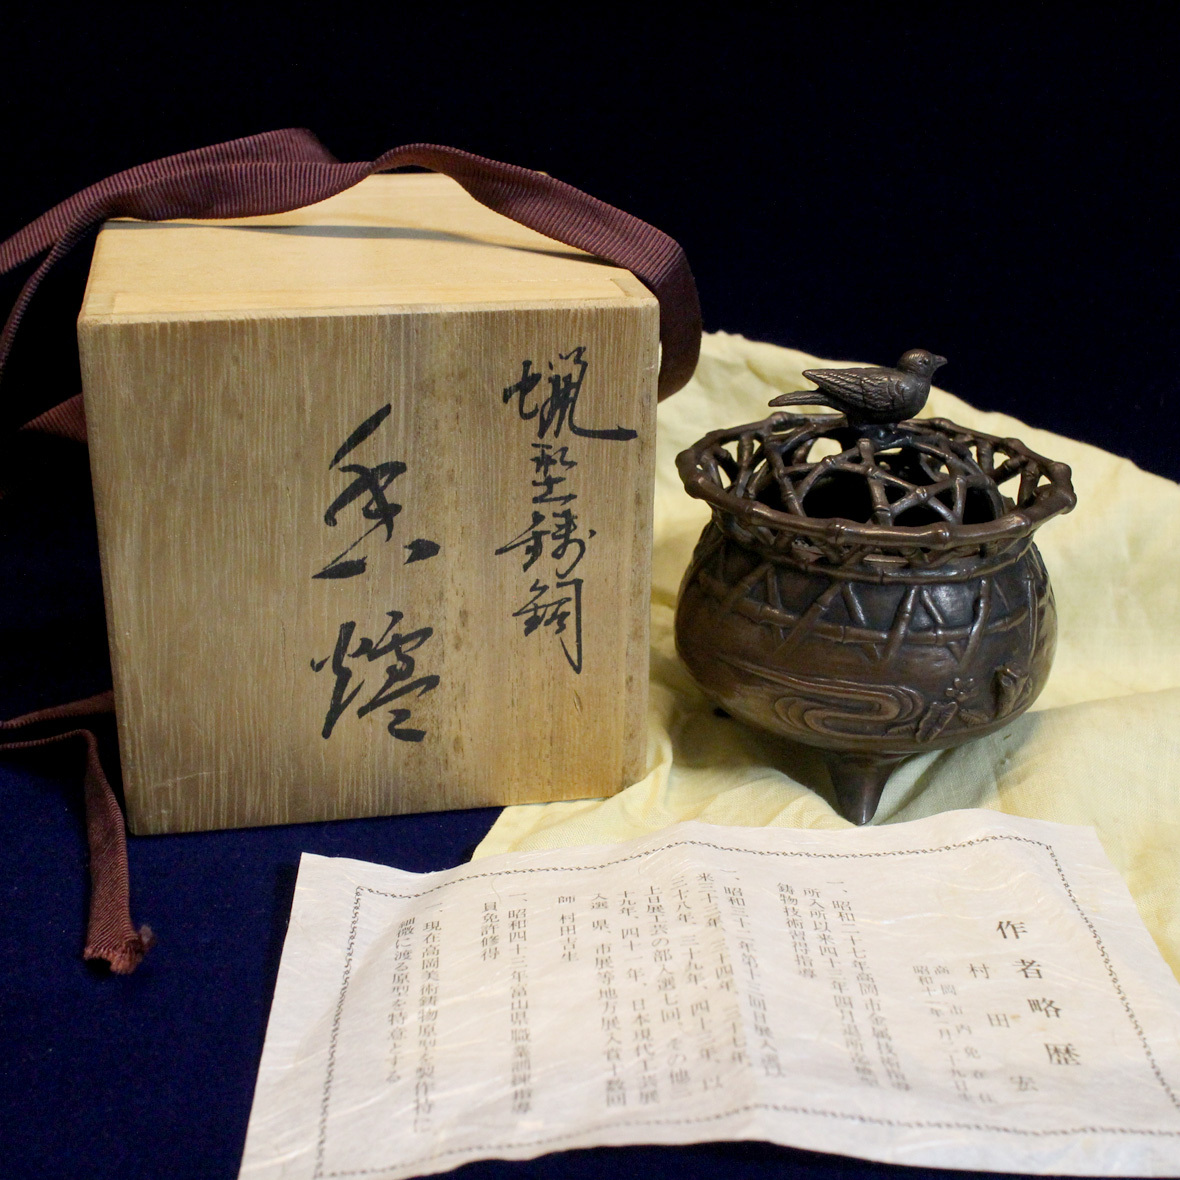 蝋型鋳銅
香炉
作者略歴
村田宏
高岡市内免在住
一、昭和二十七年高岡市金属技術指導
所入所以来四十三年四月退所迄
鋳物技術習得指導
一、昭和三十二年第十三回日展入選以
来三十三年、三十四年、三十七年、
三十八年、三十九年、四十三年、以
上日展工芸の部入選七回、その他二
十九年、四十一年、日本現代工芸展
入選 県、市展等地方展入賞十数回
師 村田吉生
一、昭和四十三年富山県職業訓練指導
員免許修得
一、現在高岡美術鋳物原型を製作特に
細微に渡る原型を特意とする